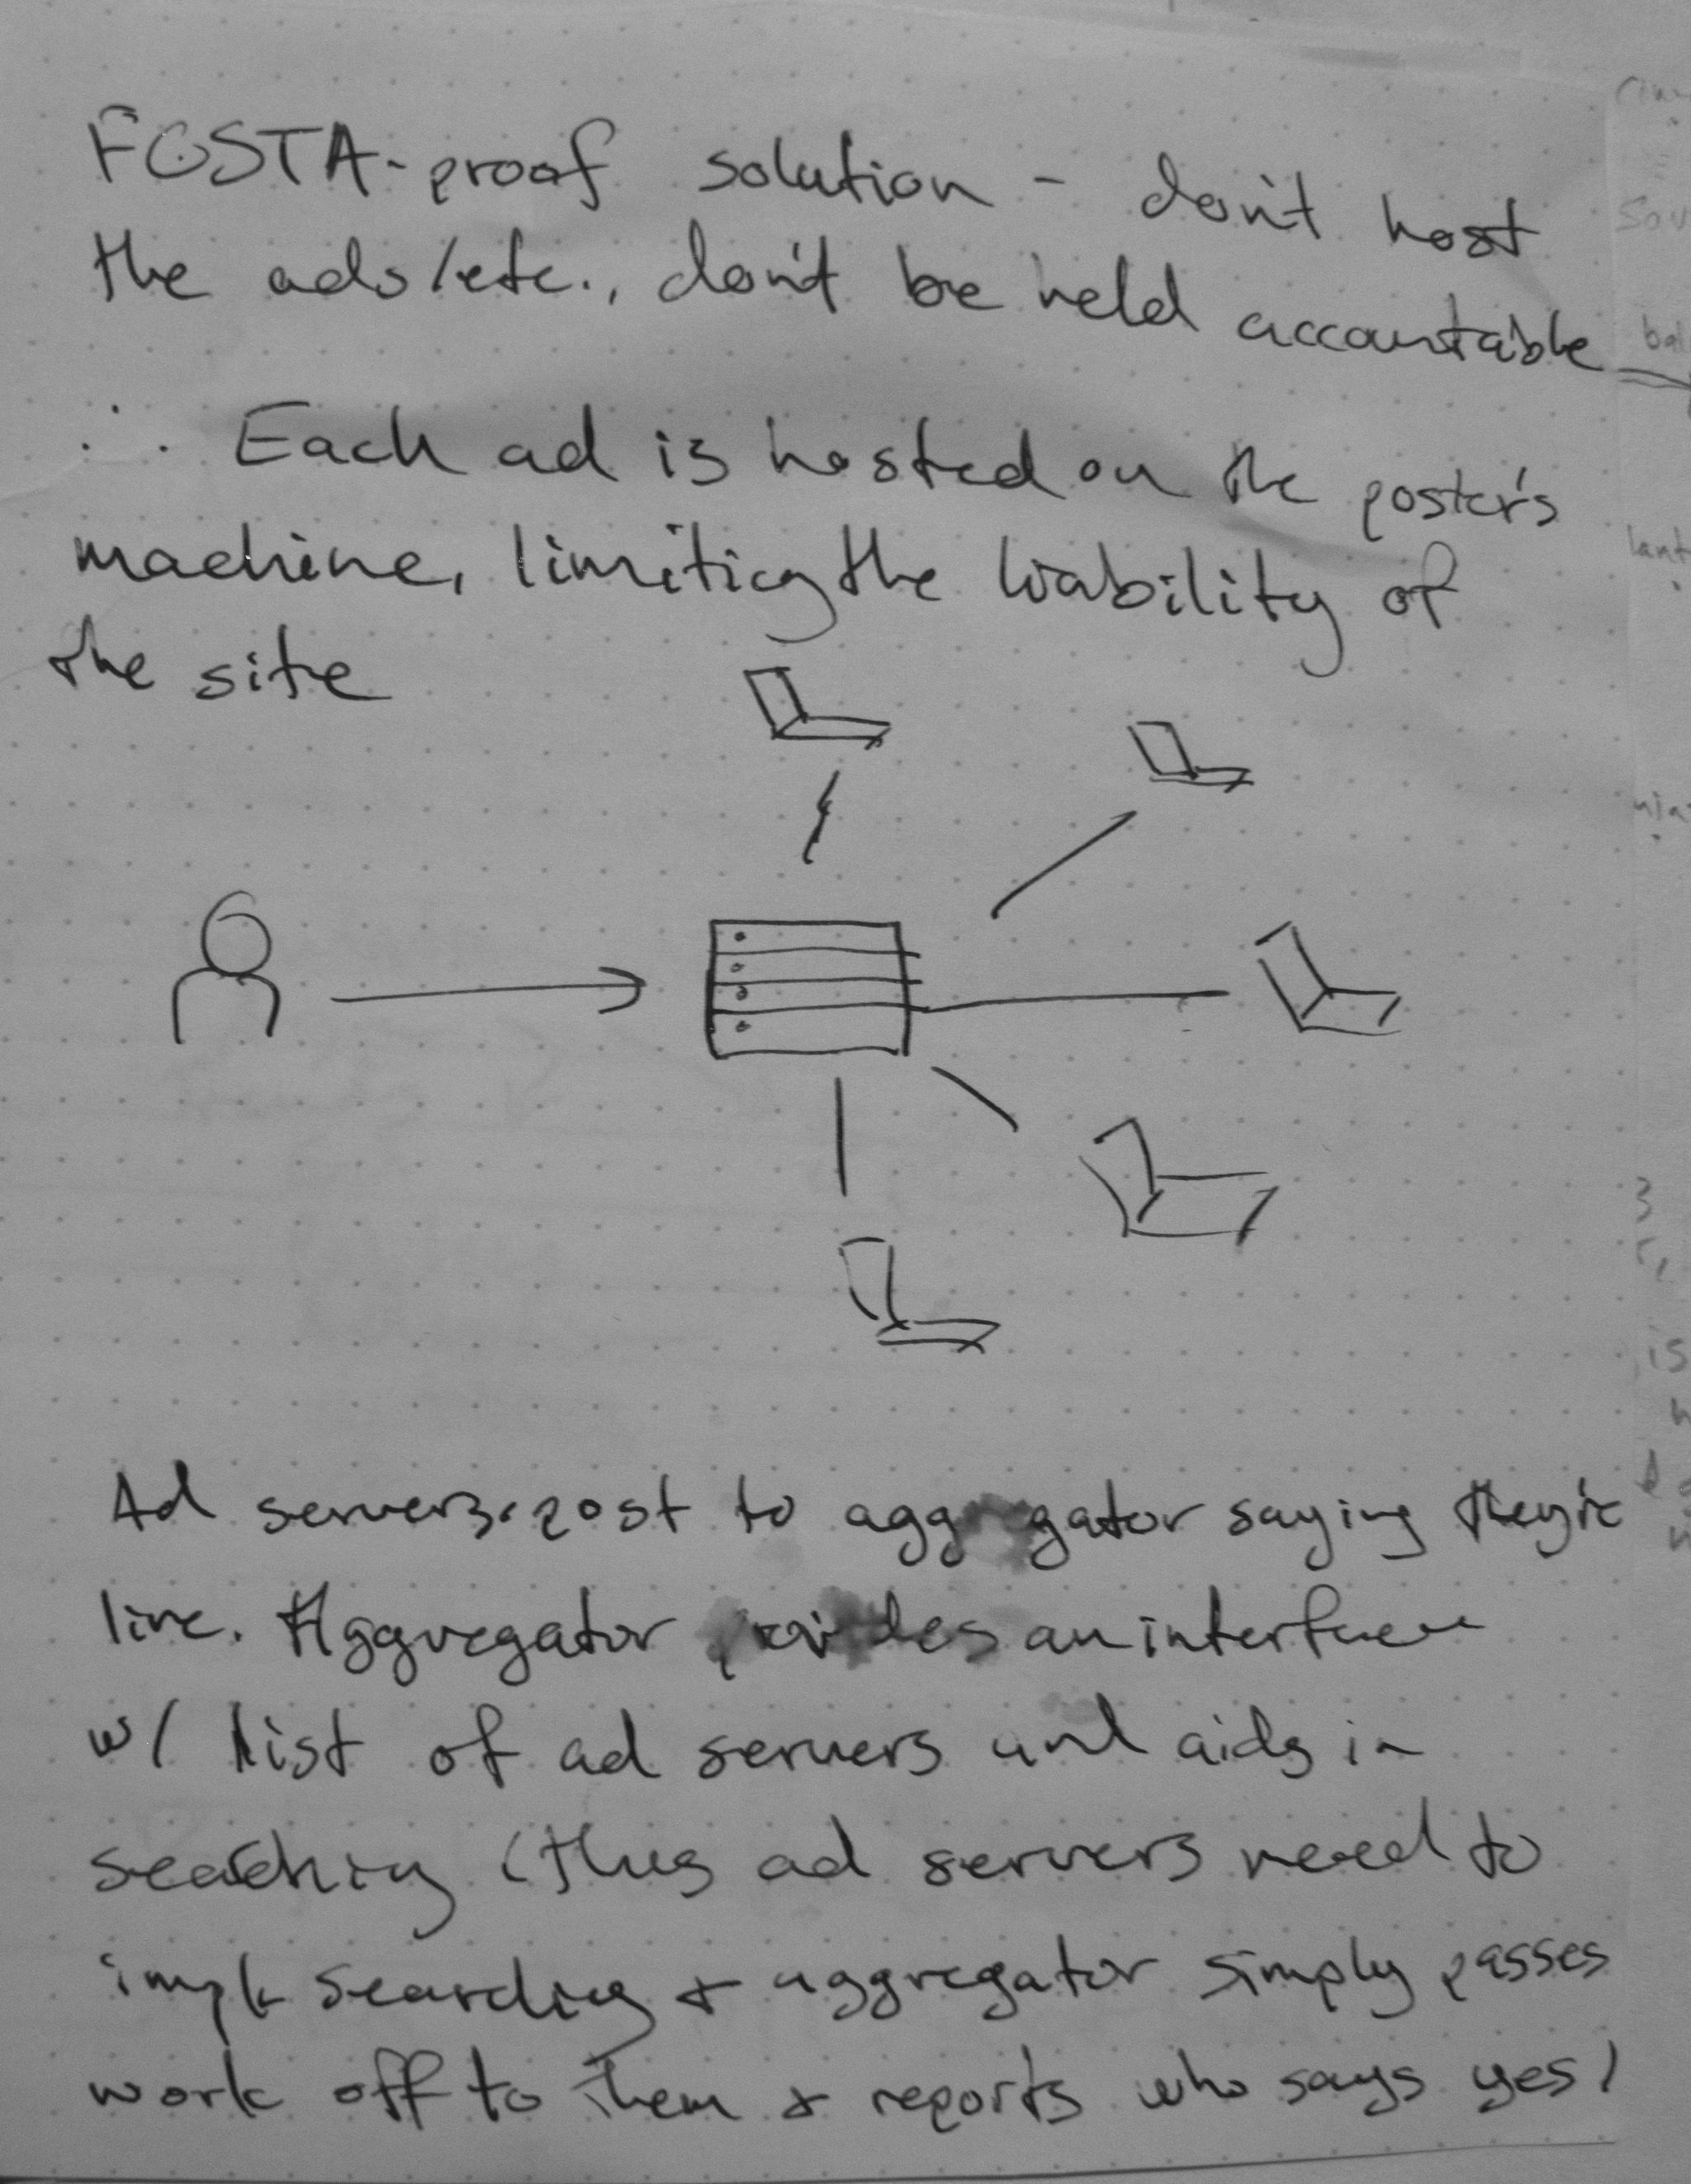 FOSTA-proof solution - don't host
the ads/etc., don't be held accountable
∴ Each ad is hosted on the poster's
machine, limiting the liability of
the site
Ad servers post to aggregator saying they're
live. Aggregator provides an interface
w/ list of ad servers and aids in
searching (thus ad servers need to
impl. searching & aggregator simply passes
work off to them & reports who says yes)